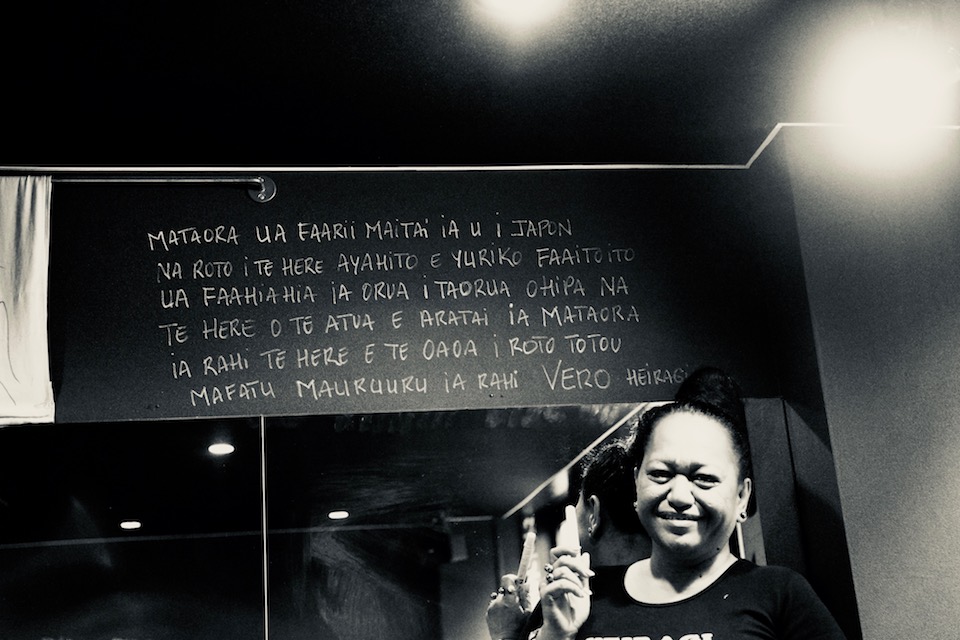 MATAORA UA FAARII MAITAI IA U I JAPON
NA ROTO I TE HERE AYAHITO E YURIKO FAAITOITO
UA FAAHIAHIA IA ORUA I TAORUA OHIPA NA
TE HERE O TE ATUA E ARATAI IA MATAORA
IA RAHI TE HERE E TE OAOA I ROTO TOTOU
MAFATU MAURUURU IA RAHI VERO HEIRAGI